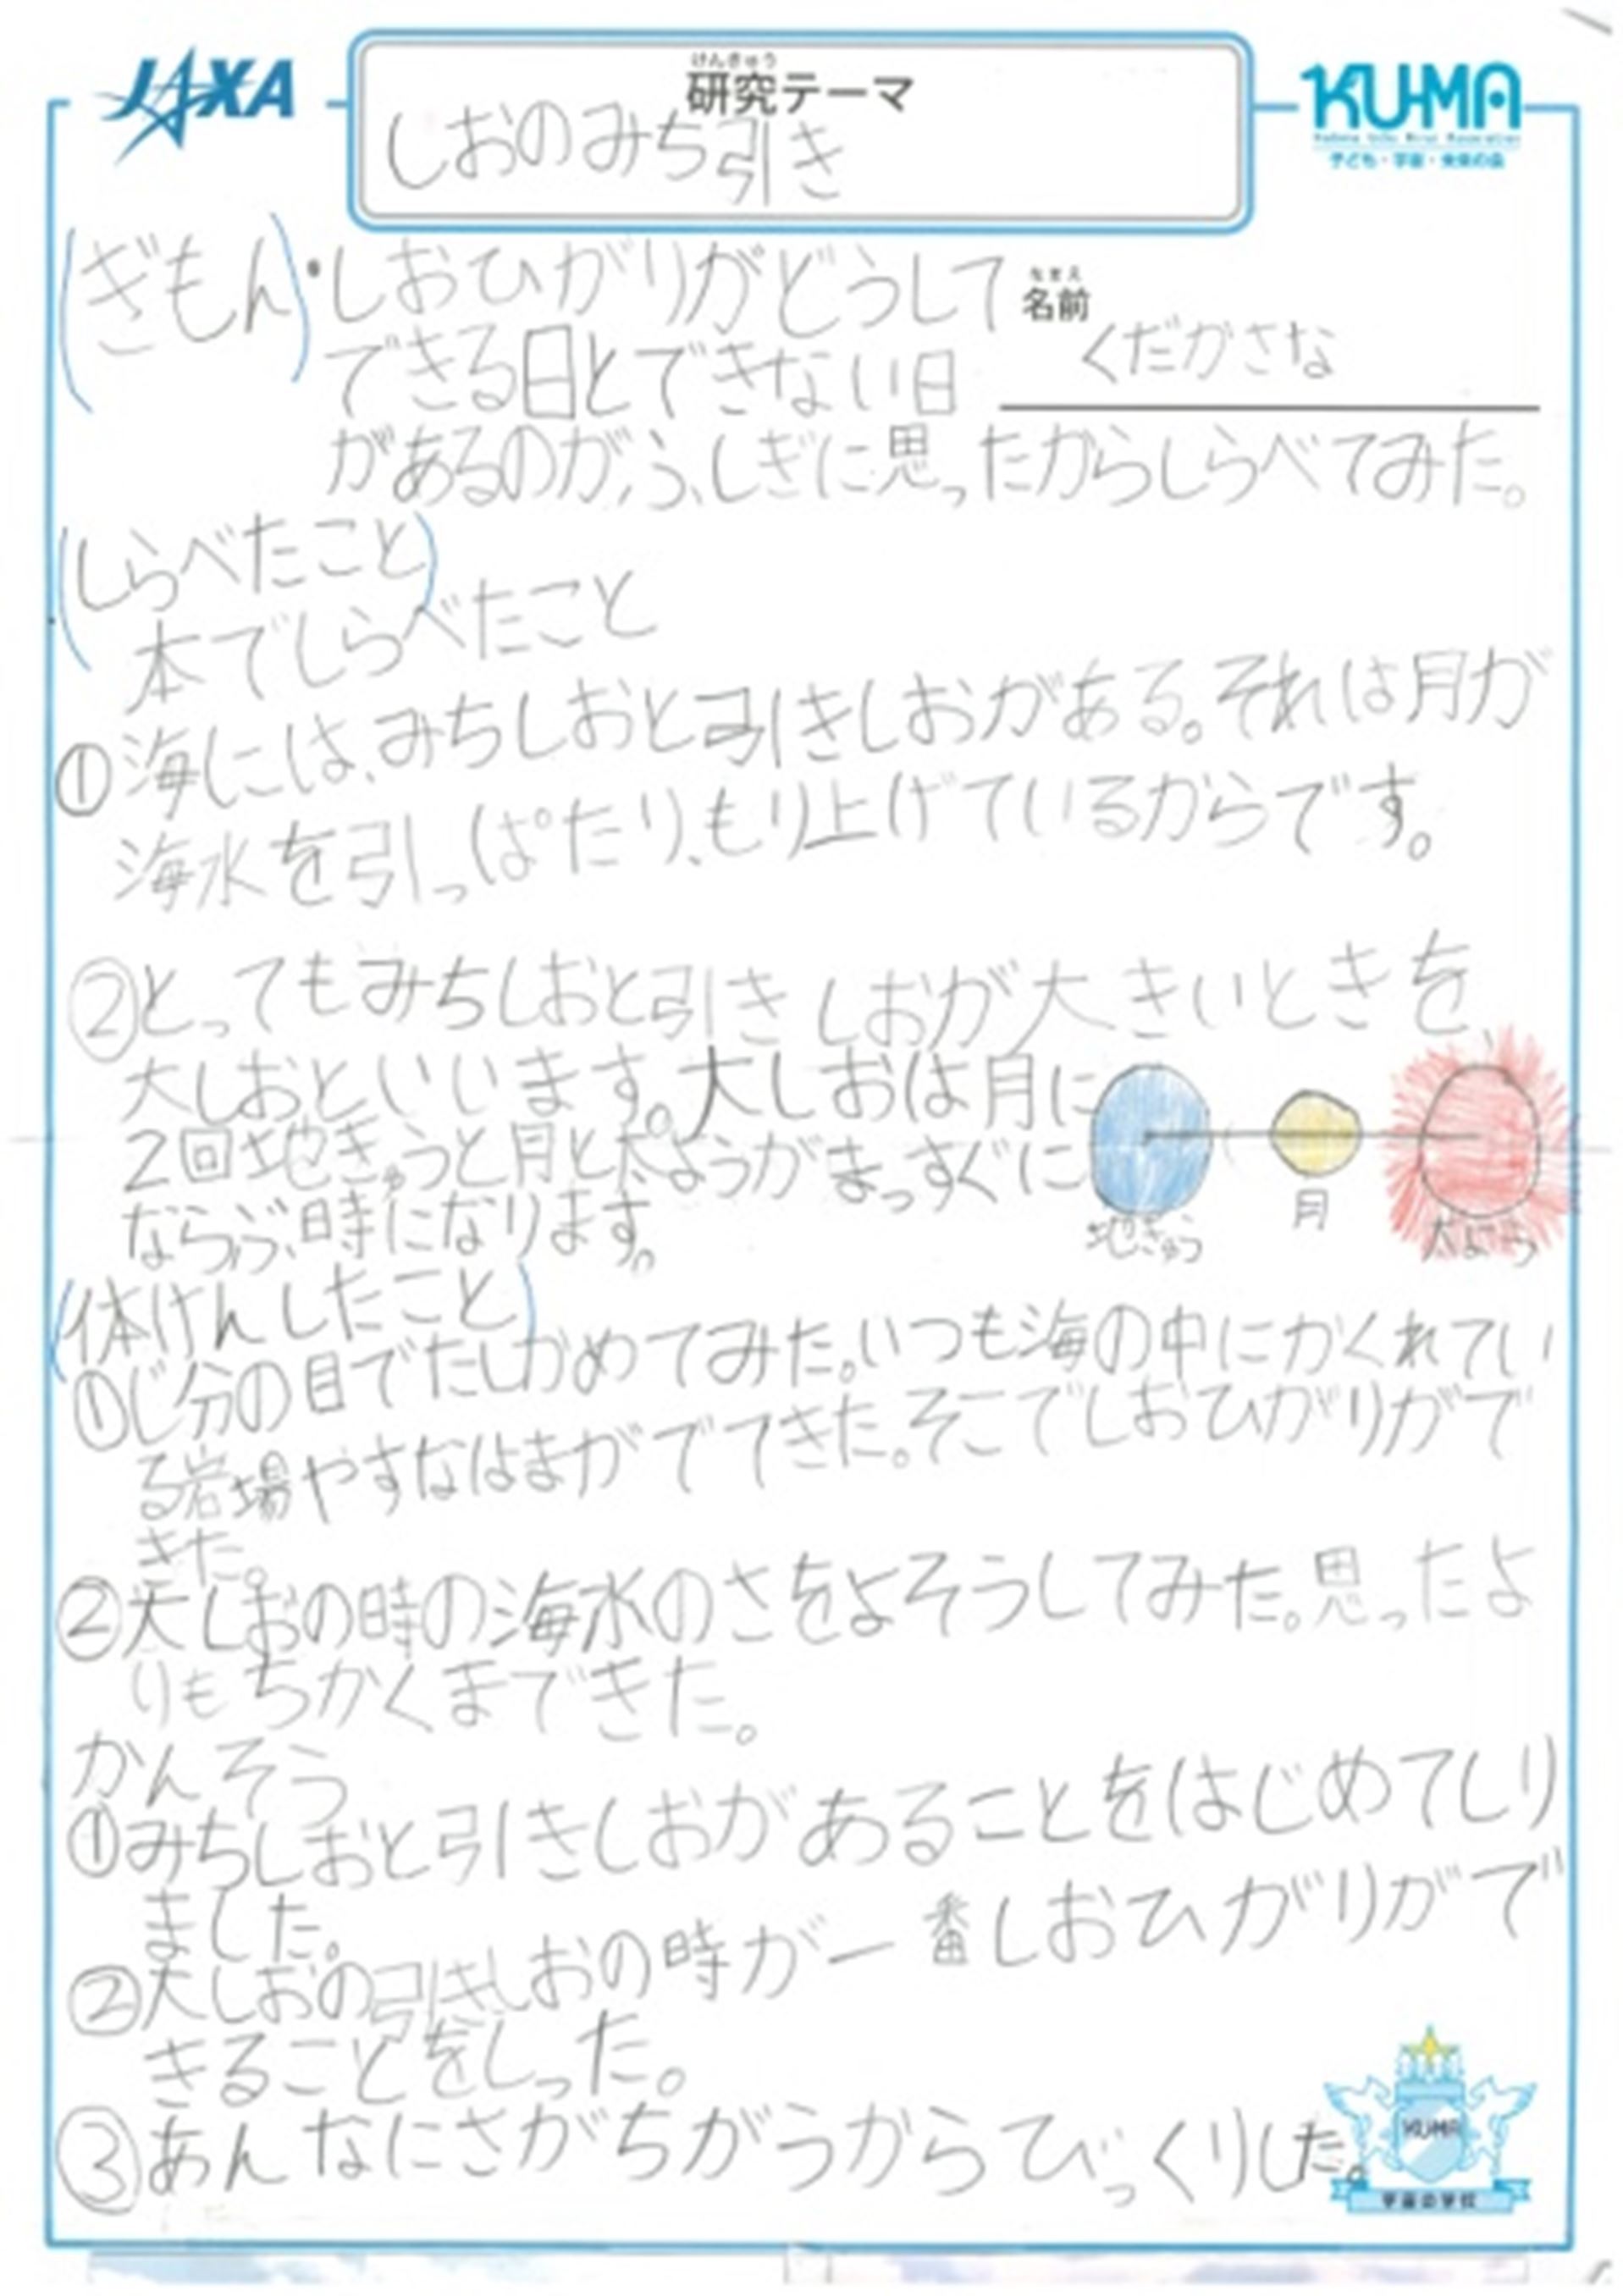 JAXA
けんきゅう
研究テーマ
しおのみち引き
KUMA
子ども・宇宙・未来の会
(ぎもん)・しおひがりがどうして
できる日とできない日
があるのが、ふしぎに思ったからしらべてみた。
なまえ
名前
くだかさな
(しらべたこと)
本でしらべたこと
①海には、みちしおと引きしおがある。それは月が
海水を引っぱたり、もり上げているからです。
②とってもみちしおと引きしおが大きいときを
大しおといいます。大しおは月に
2回地きゅうと月と太ようがまっすぐに
ならぶ時になります。
地きゅう
月
太よう
(体けんしたこと)
①じ分の目でたしかめてみた。いつも海の中にかくれてい
る岩場やすなはまがでてきた。そこでしおひがりがで
きた。
②大しおの時の海水のさをよそうしてみた。思ったよ
りもちかくまできた。
かんそう
①みちしおと引きしおがあることをはじめてしり
ました。
②大しおの引きしおの時が一番しおひがりがで
きることをしった。
③あんなにさがちがうからびっくりした。
KUMA
宇宙の学校